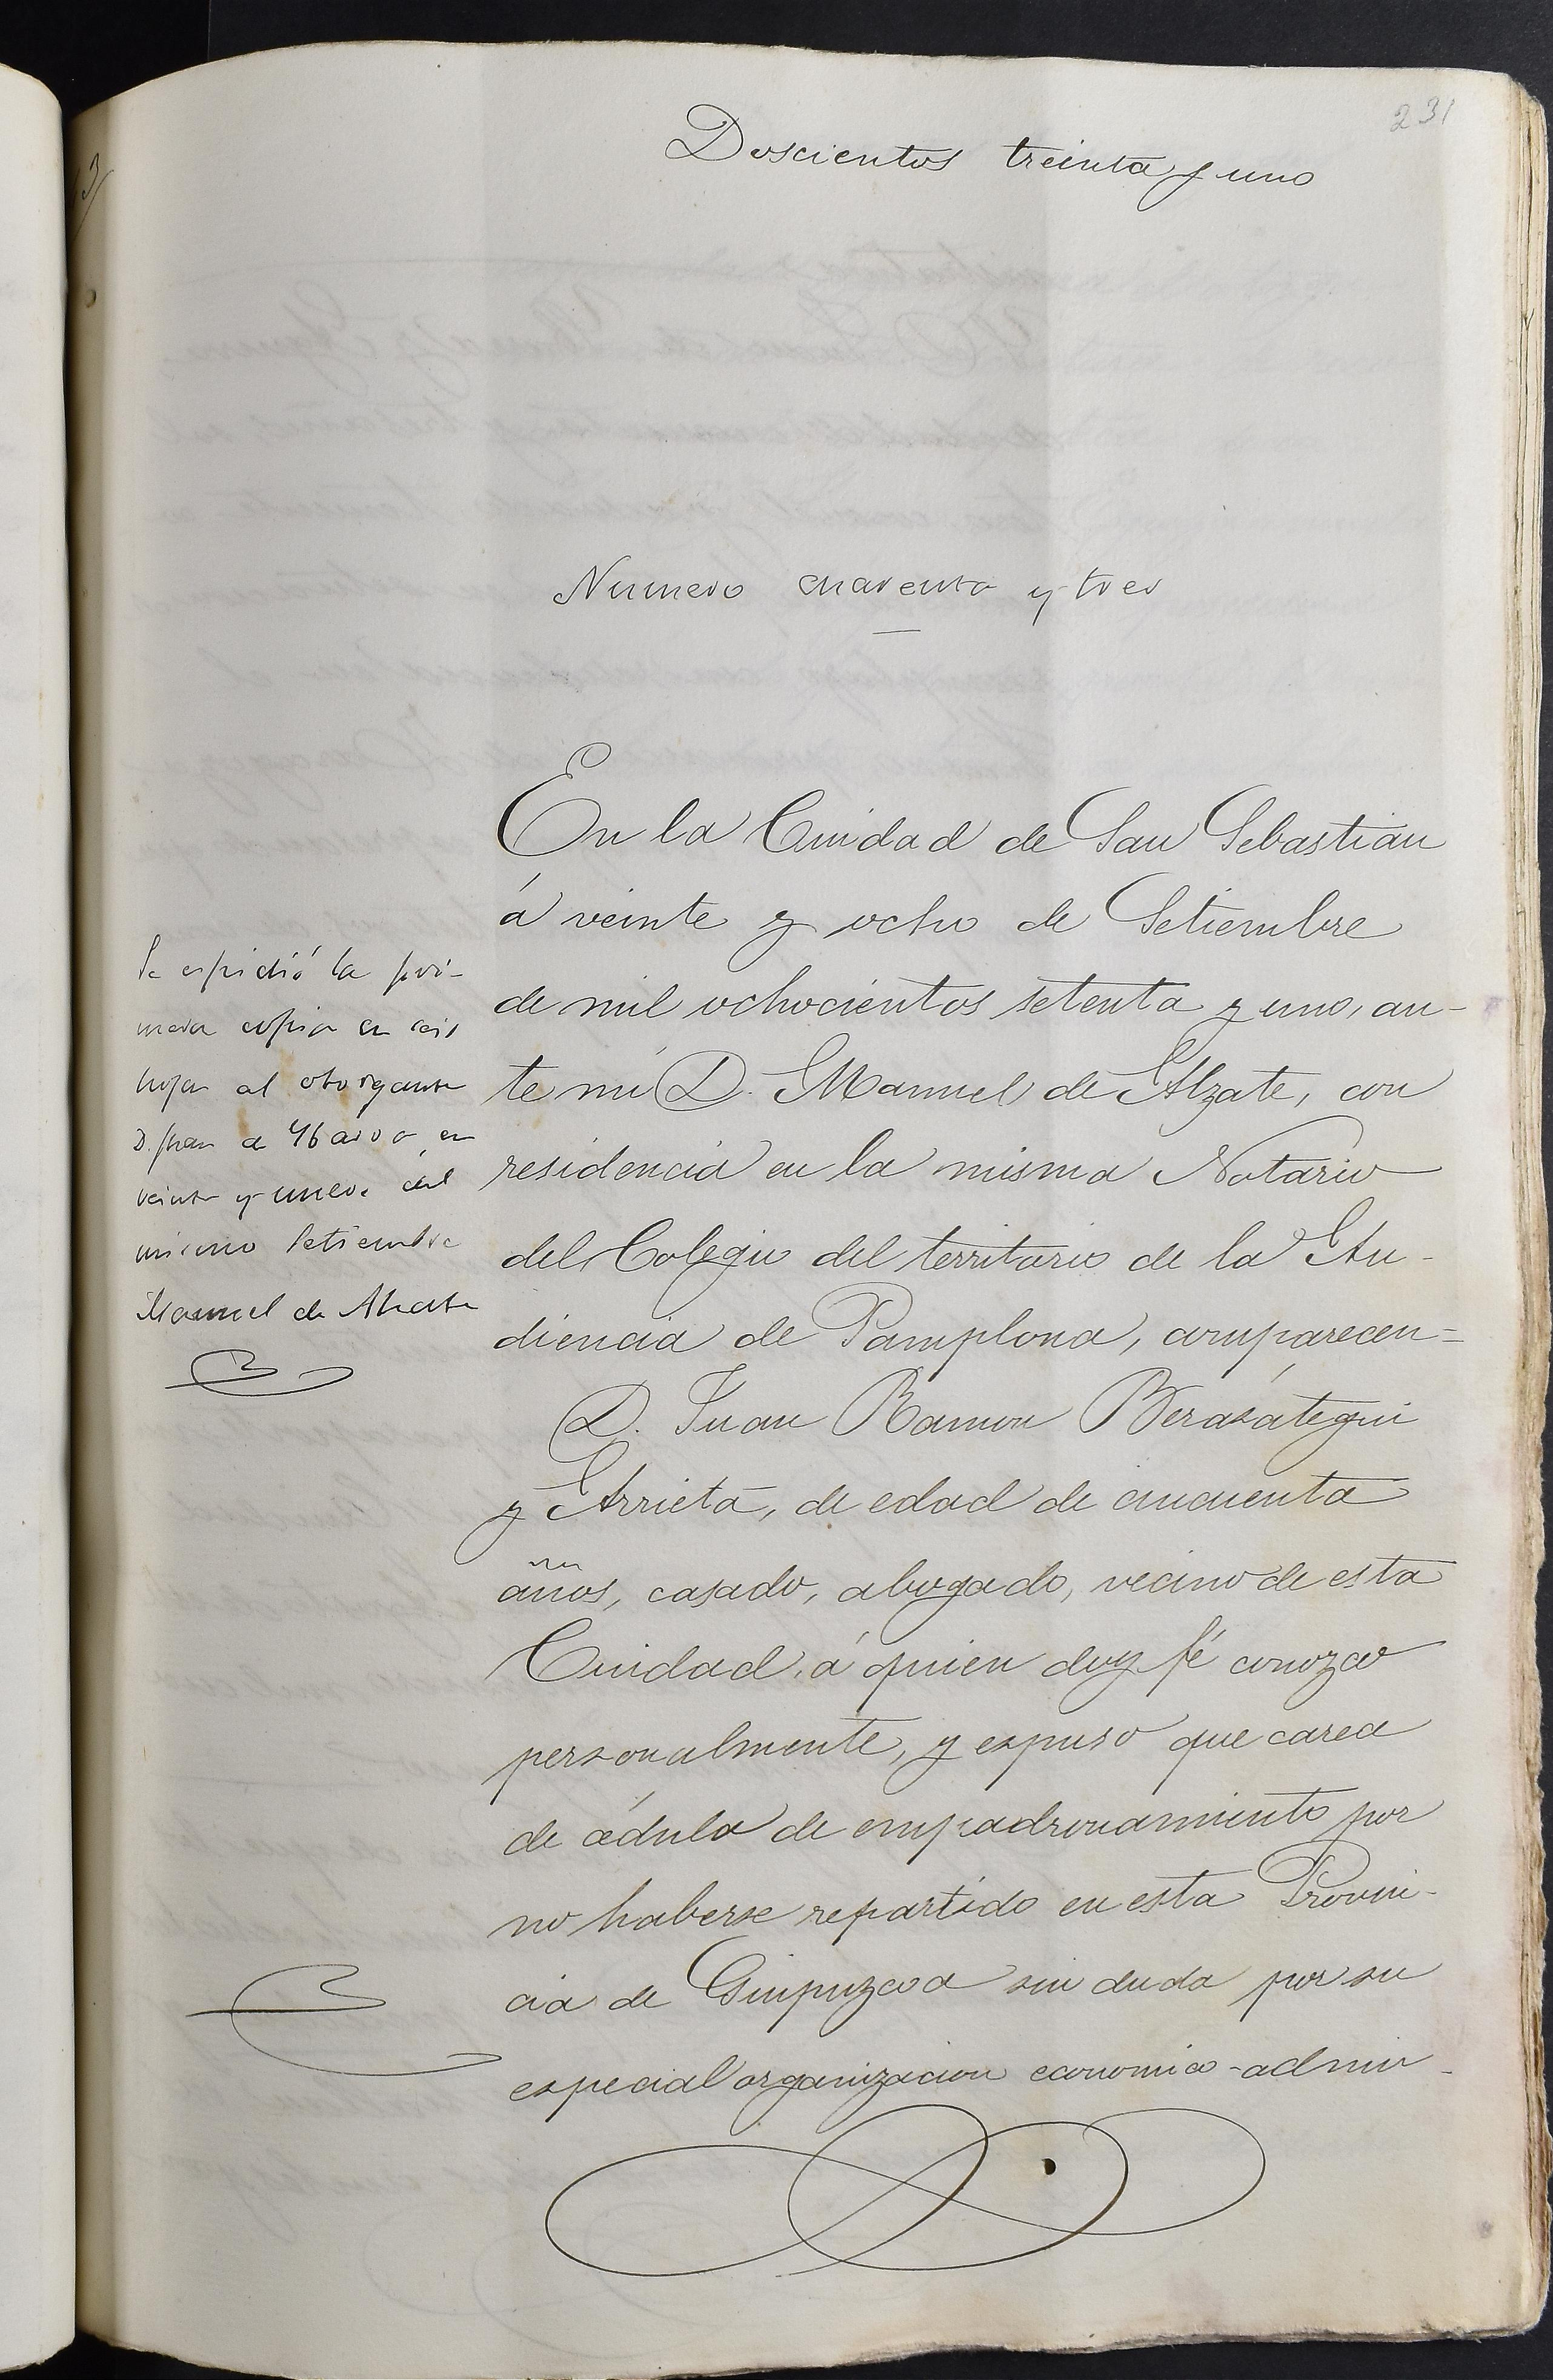 231
Doscientos treinta y uno
Numero cuarenta y tres
Se espidió la pri-
mera copia en seis
hojas al otorgante
D. Juan de Ybarra en
veinte y nueve del
mismo Setiembre
Manuel de Alzate
En la Ciudad de San Sebastian
á veinte y ocho de Setiembre
de mil ochocientos setenta y uno, an-
te mi D. Manuel de Alzate, con
residencia en la misma Notario
del Colegio del territorio de la Au-
diencia de Pamplona, comparecen=
D. Juan Ramon Berasátegui
y Arrieta, de edad de cincuenta
años, casado, abogado, vecino de esta
Ciudad, á quien doy fé conozco
personalmente, y espuso que carece
de cédula de empadronamiento por
no haberse repartido en esta Provin-
cia de Guipuzcoa sin duda por su
especial organizacion economico-admi-